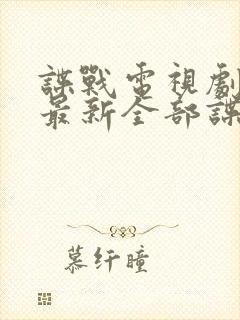 諜戰電視劇
最新全部諜
慕纤瞳